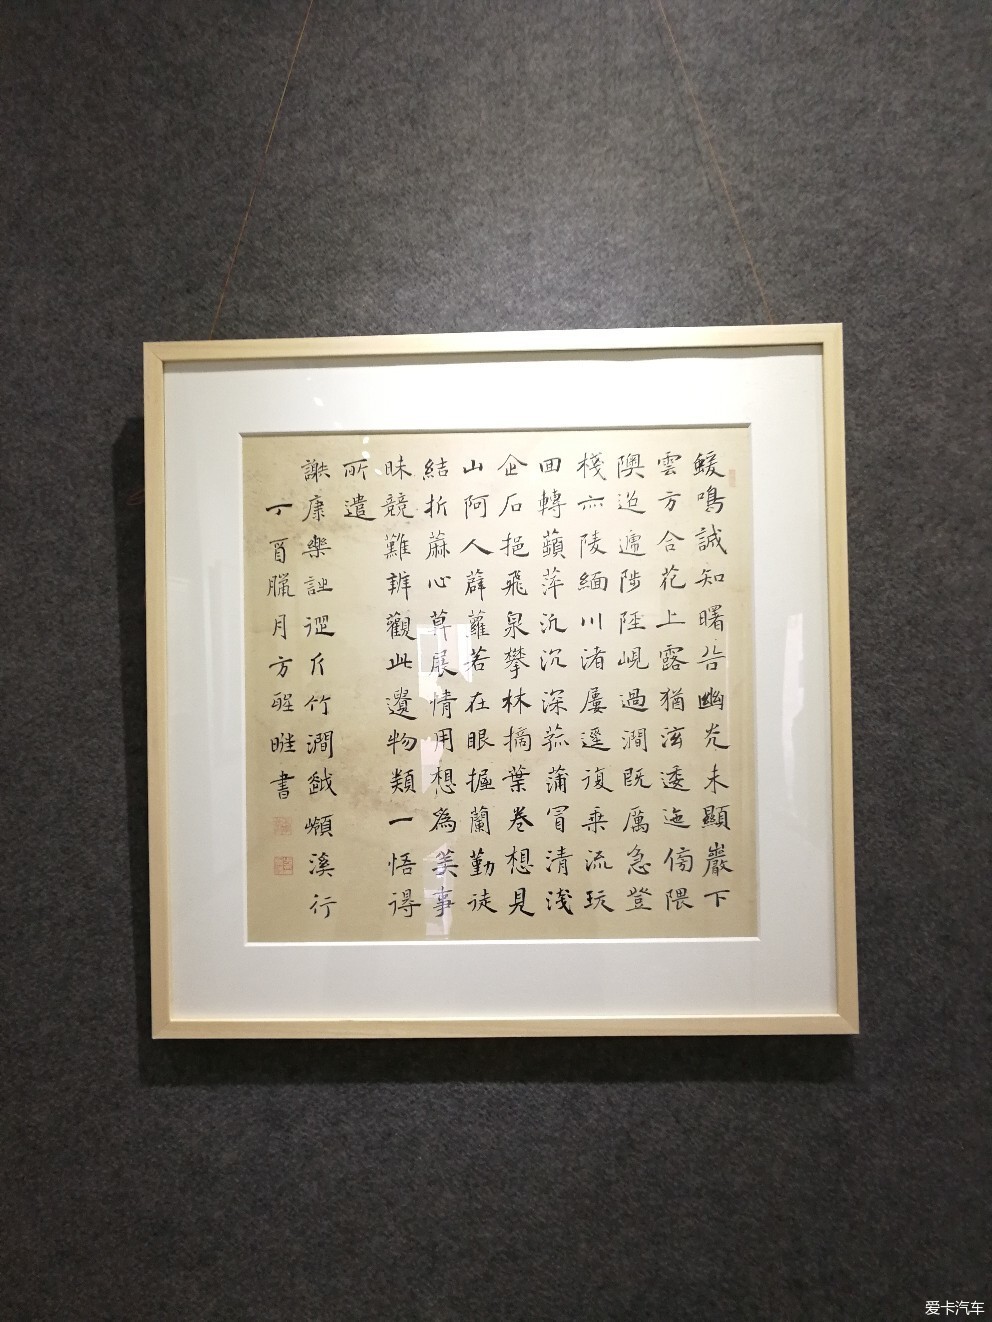 鳴誠知曙告幽光未顯巖下
雲方合花上露猶泫逶迤傍隈
隩迢遞陟陘峴過澗既厲急登
棧亦陵緬川渚屢逕復乘流玩
回轉蘋萍泛沉深菰蒲冒清淺
企石挹飛泉攀林摘葉卷想見
山阿人薜蘿若在眼握蘭勤徒
結折麻心莫展情用想為美事
昧競難辨觀此遺物類一悟得
所遣
謝康樂詩從斤竹澗越嶺溪行
丁酉臘月方書
爱卡汽车